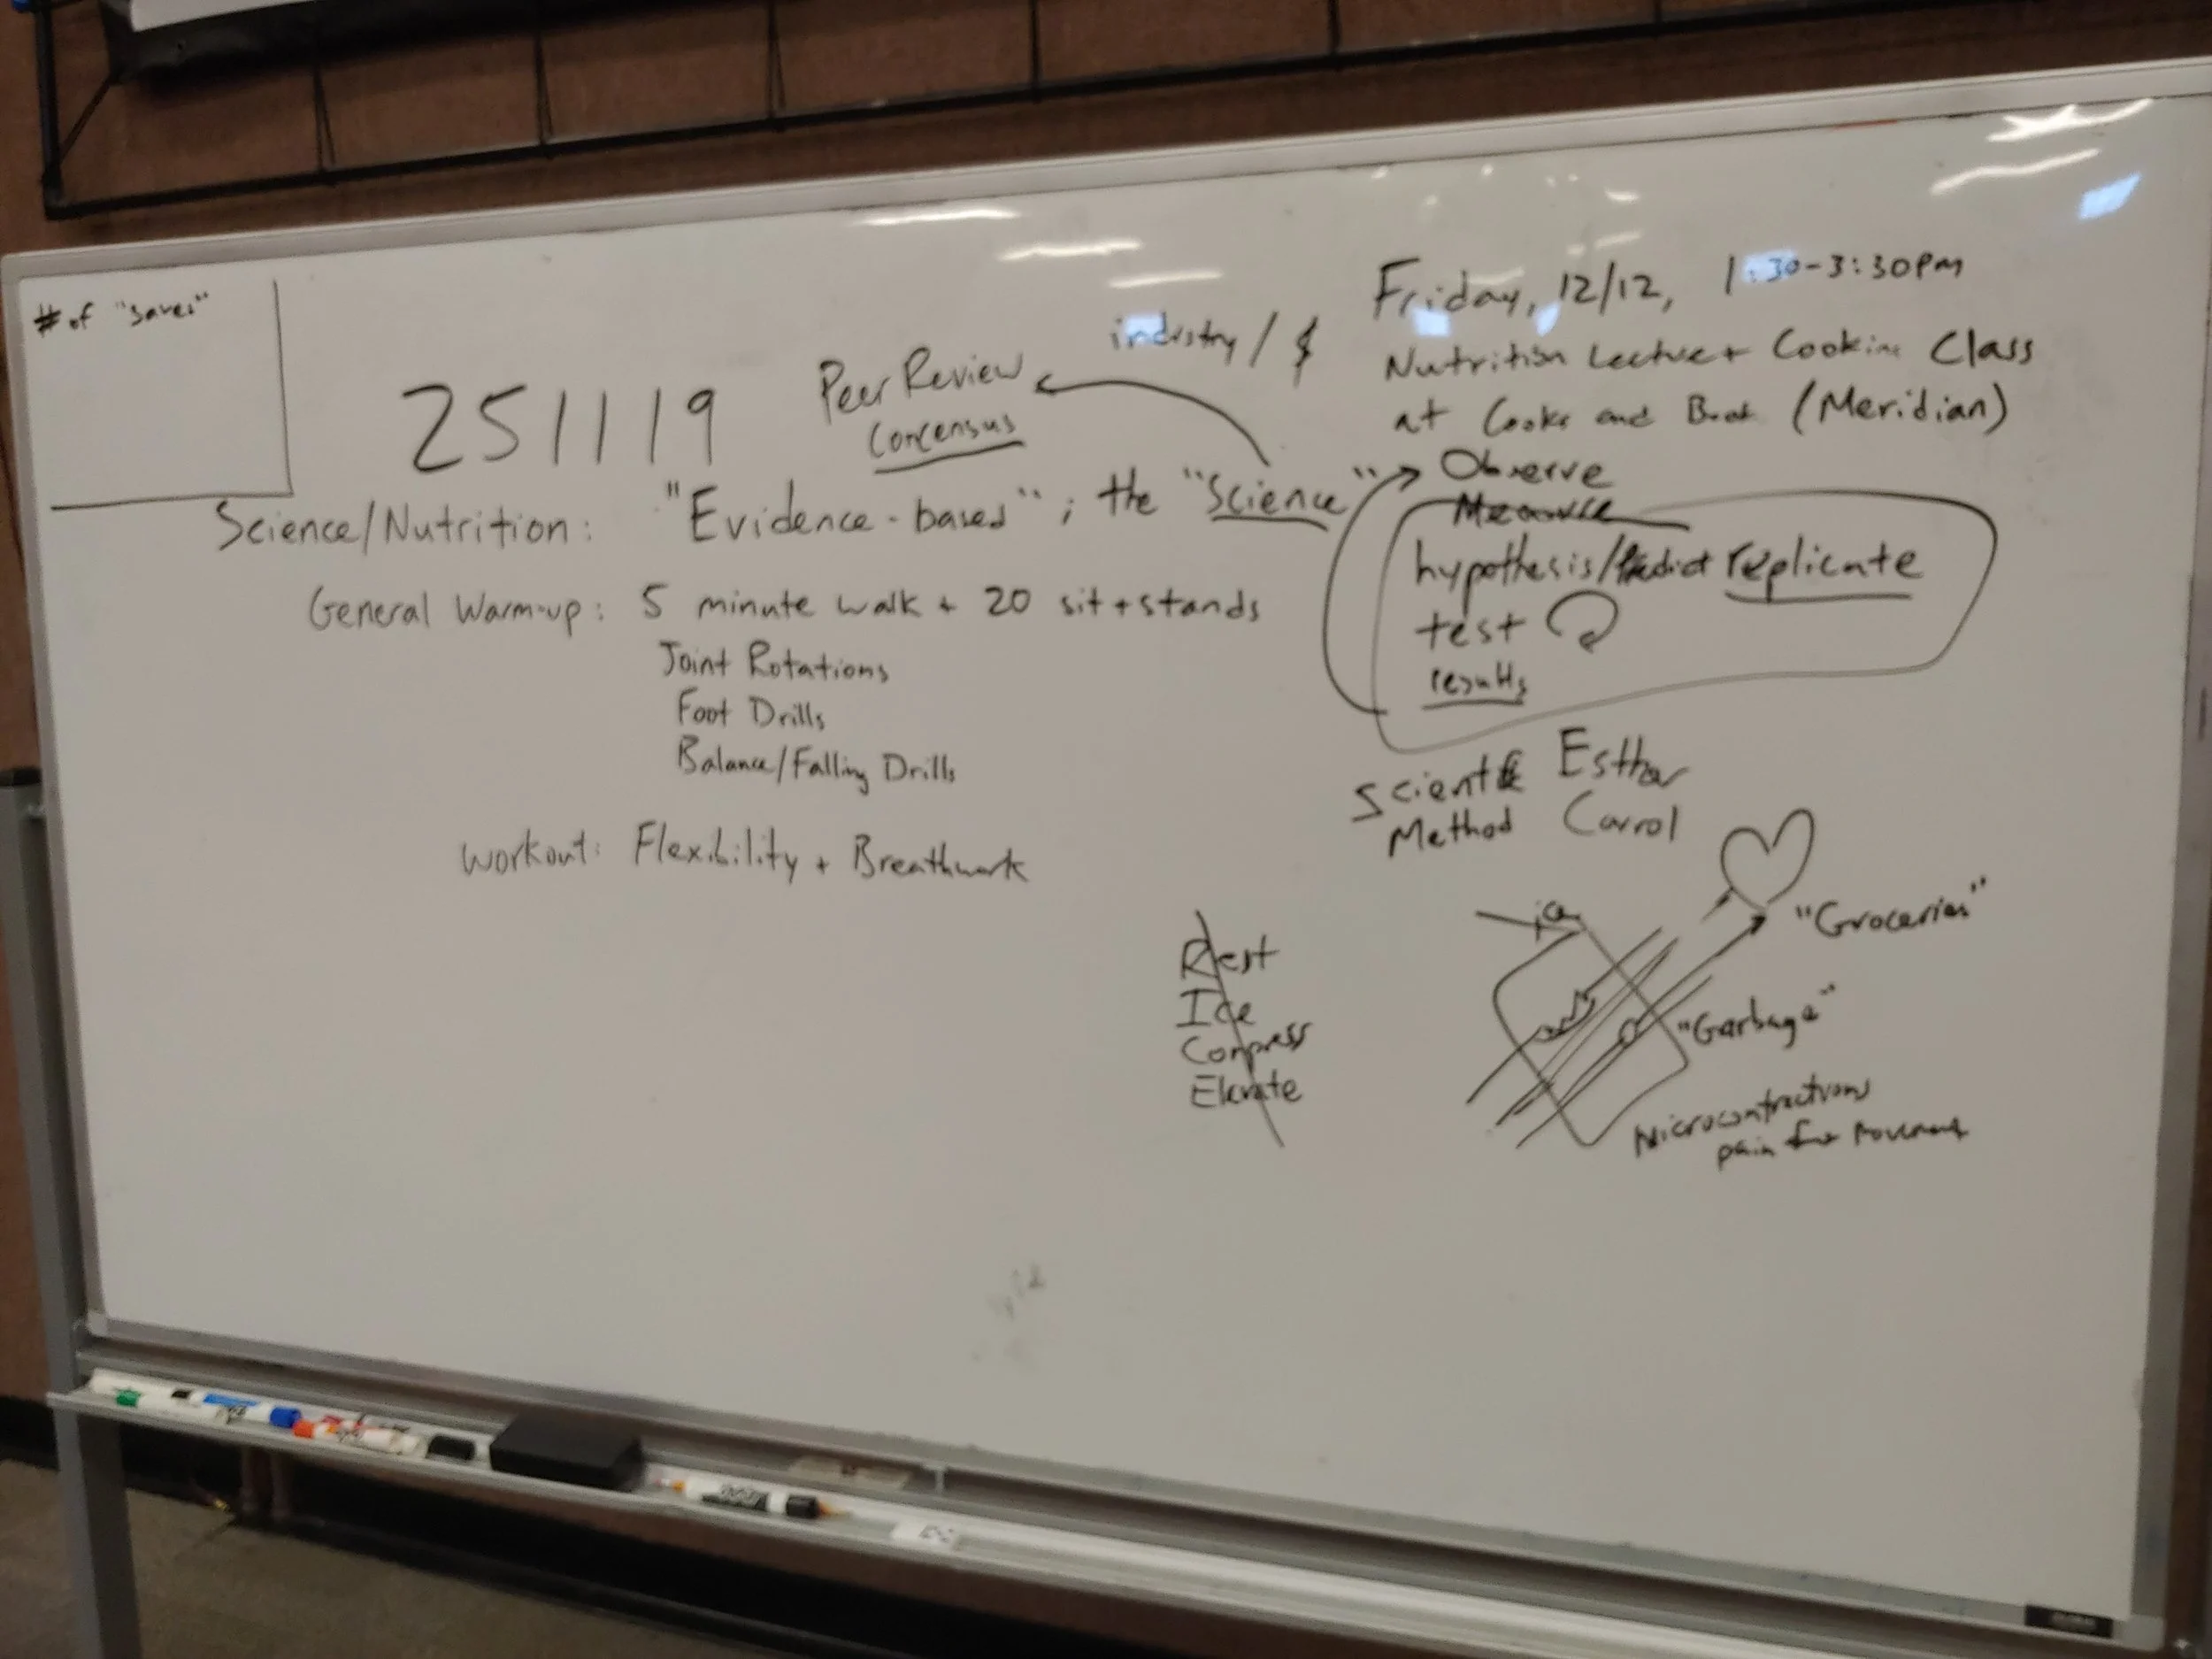 # of "saves"
Friday, 12/12, 1:30-3:30pm
Nutrition Lecture + Cooking Class
at Cooks and Boat (Meridian)
251119
Peer Review
Concensus
industry / $
Science/Nutrition: "Evidence-based"; the "Science"
Observe
Measure
hypothesis/Predict replicate
test
results
Scientific Method
Esther Carrol
General Warm-up: 5 minute walk + 20 sit+stands
Joint Rotations
Foot Drills
Balance/Falling Drills
Workout: Flexibility + Breathwork
Rest
Ice
Compress
Elevate
ice
"Groceries"
"Garbage"
Microcontractions
pain free movement